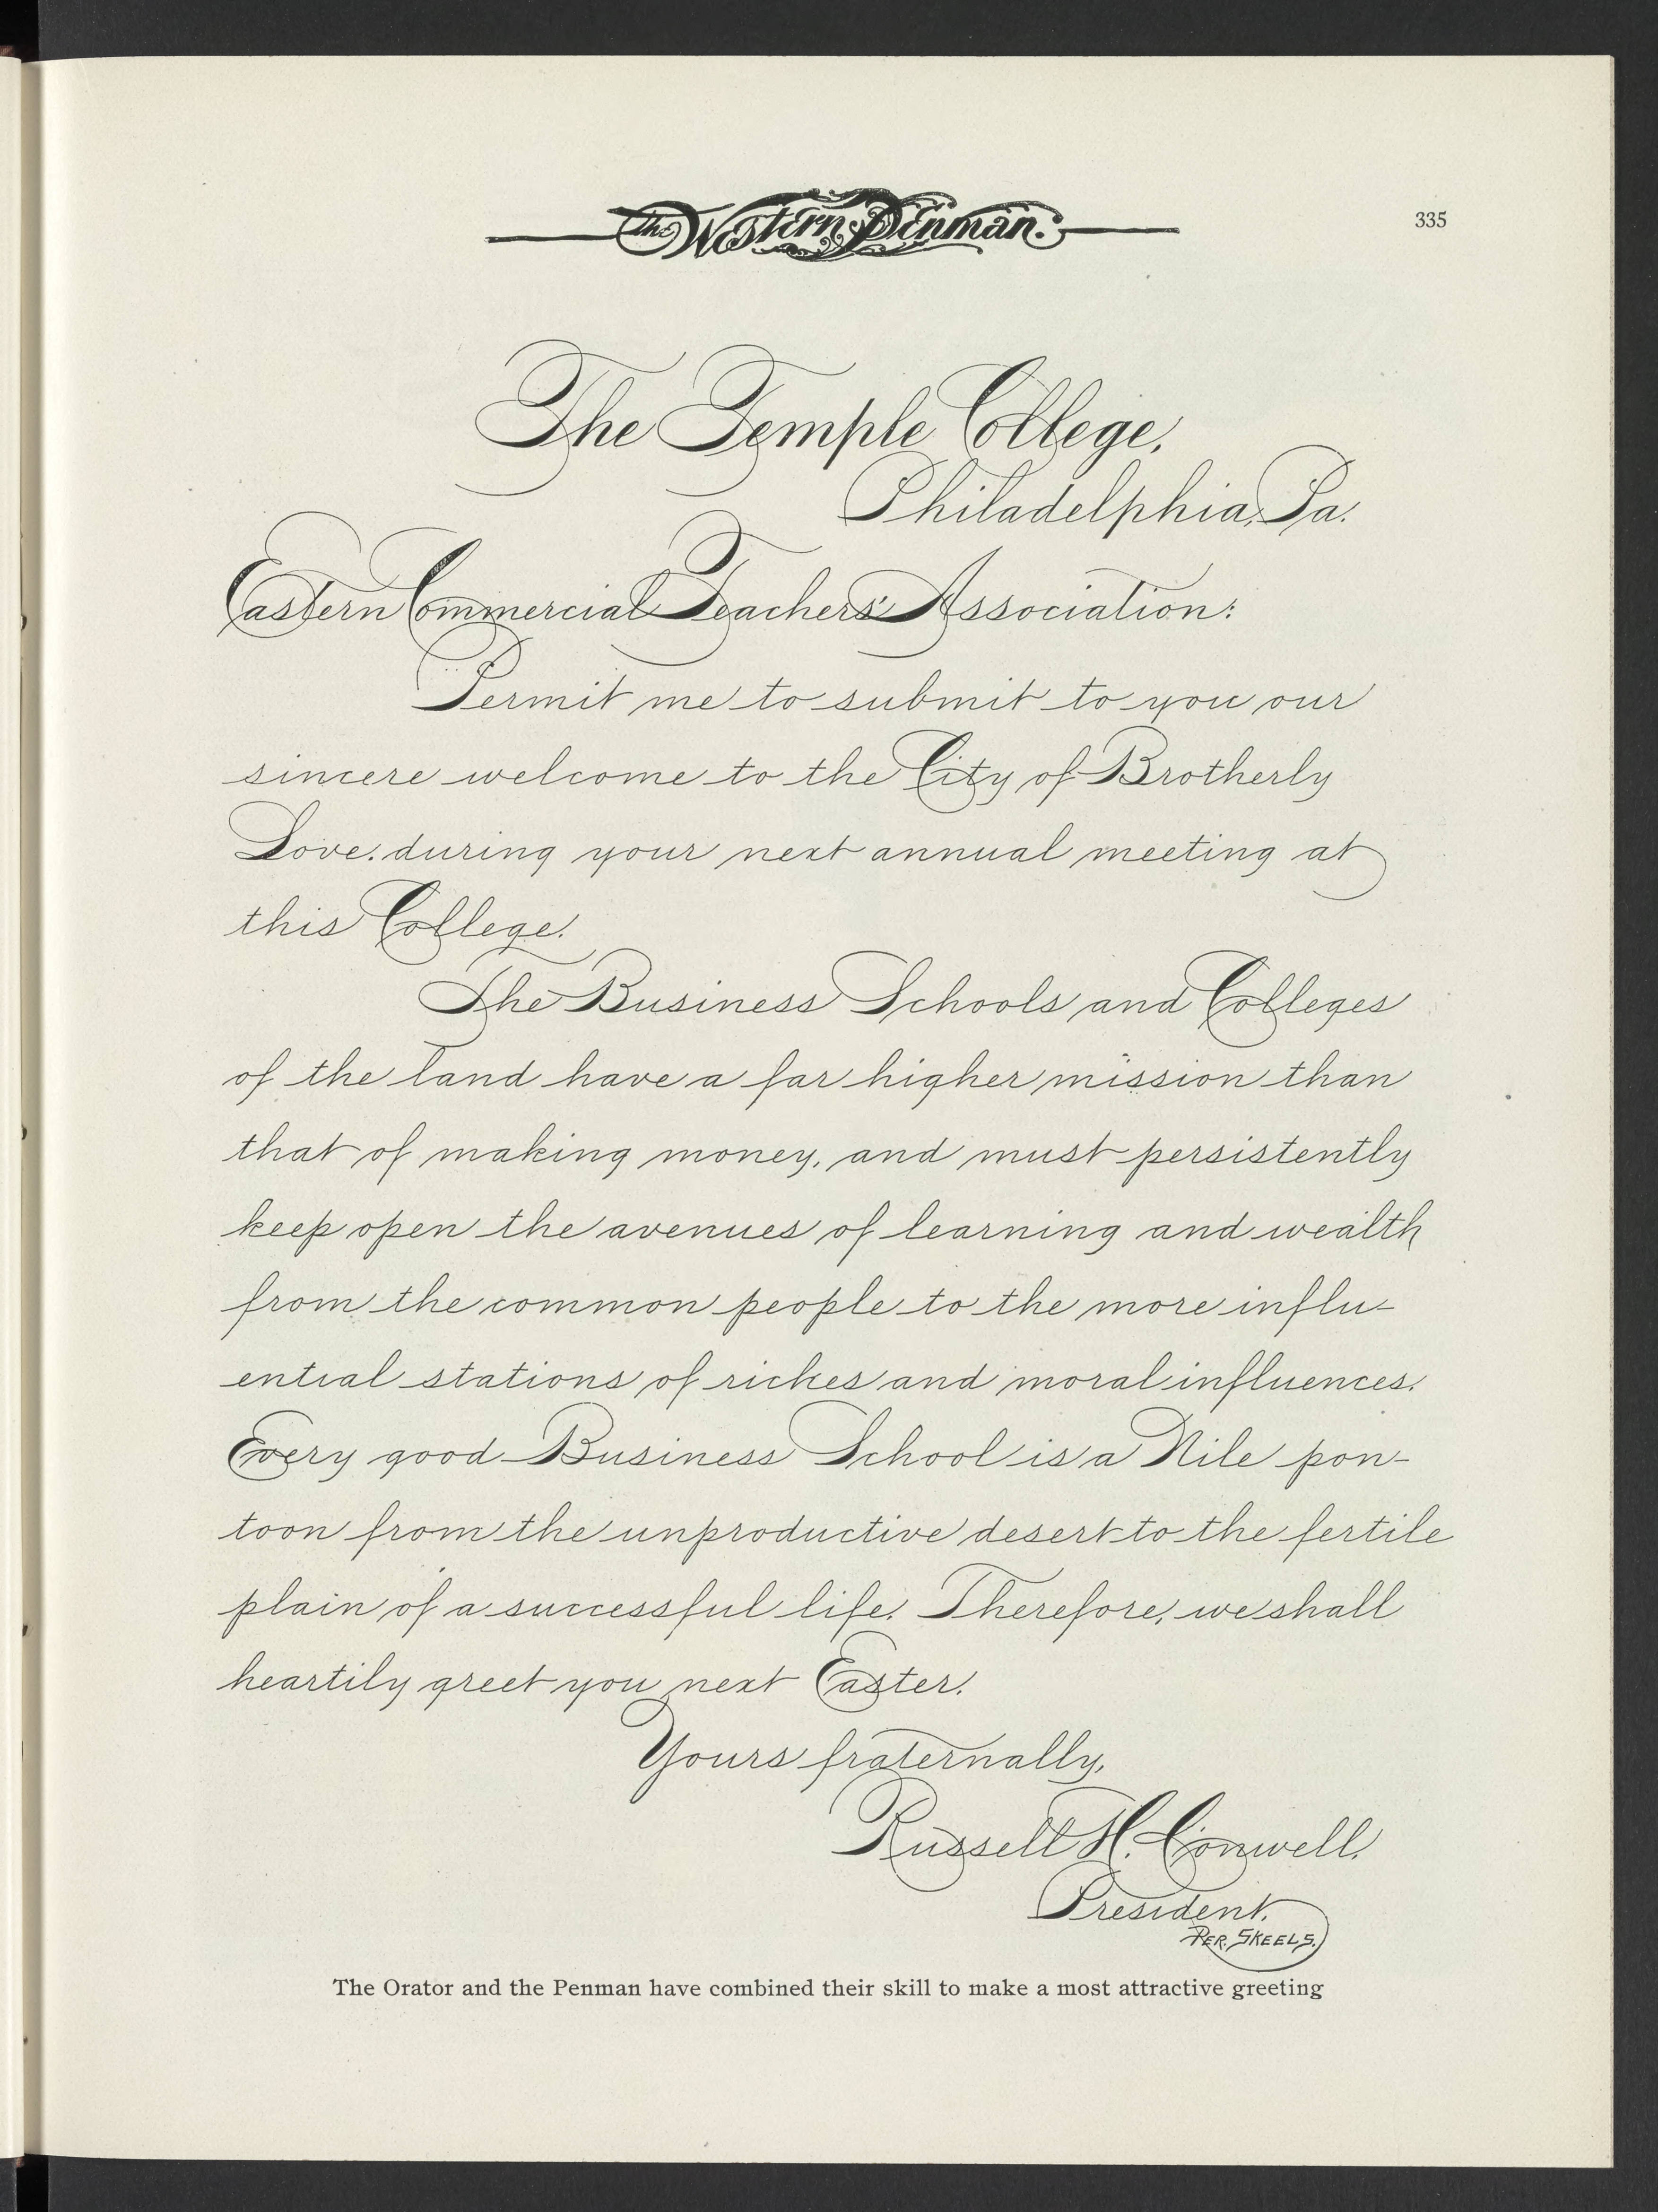 The Western Penman.
335
The Temple College,
Philadelphia, Pa.
Eastern Commercial Teachers' Association:
Permit me to submit to you our
sincere welcome to the City of Brotherly
Love, during your next annual meeting at
this College.
The Business Schools and Colleges
of the land have a far higher mission than
that of making money, and must persistently
keep open the avenues of learning and wealth
from the common people to the more influ-
ential stations of riches and moral influences.
Every good Business School is a Nile pon-
toon from the unproductive desert to the fertile
plain of a successful life. Therefore, we shall
heartily greet you next Easter.
Yours fraternally,
Russell H. Conwell,
President.
PER. SKEELS.
The Orator and the Penman have combined their skill to make a most attractive greeting